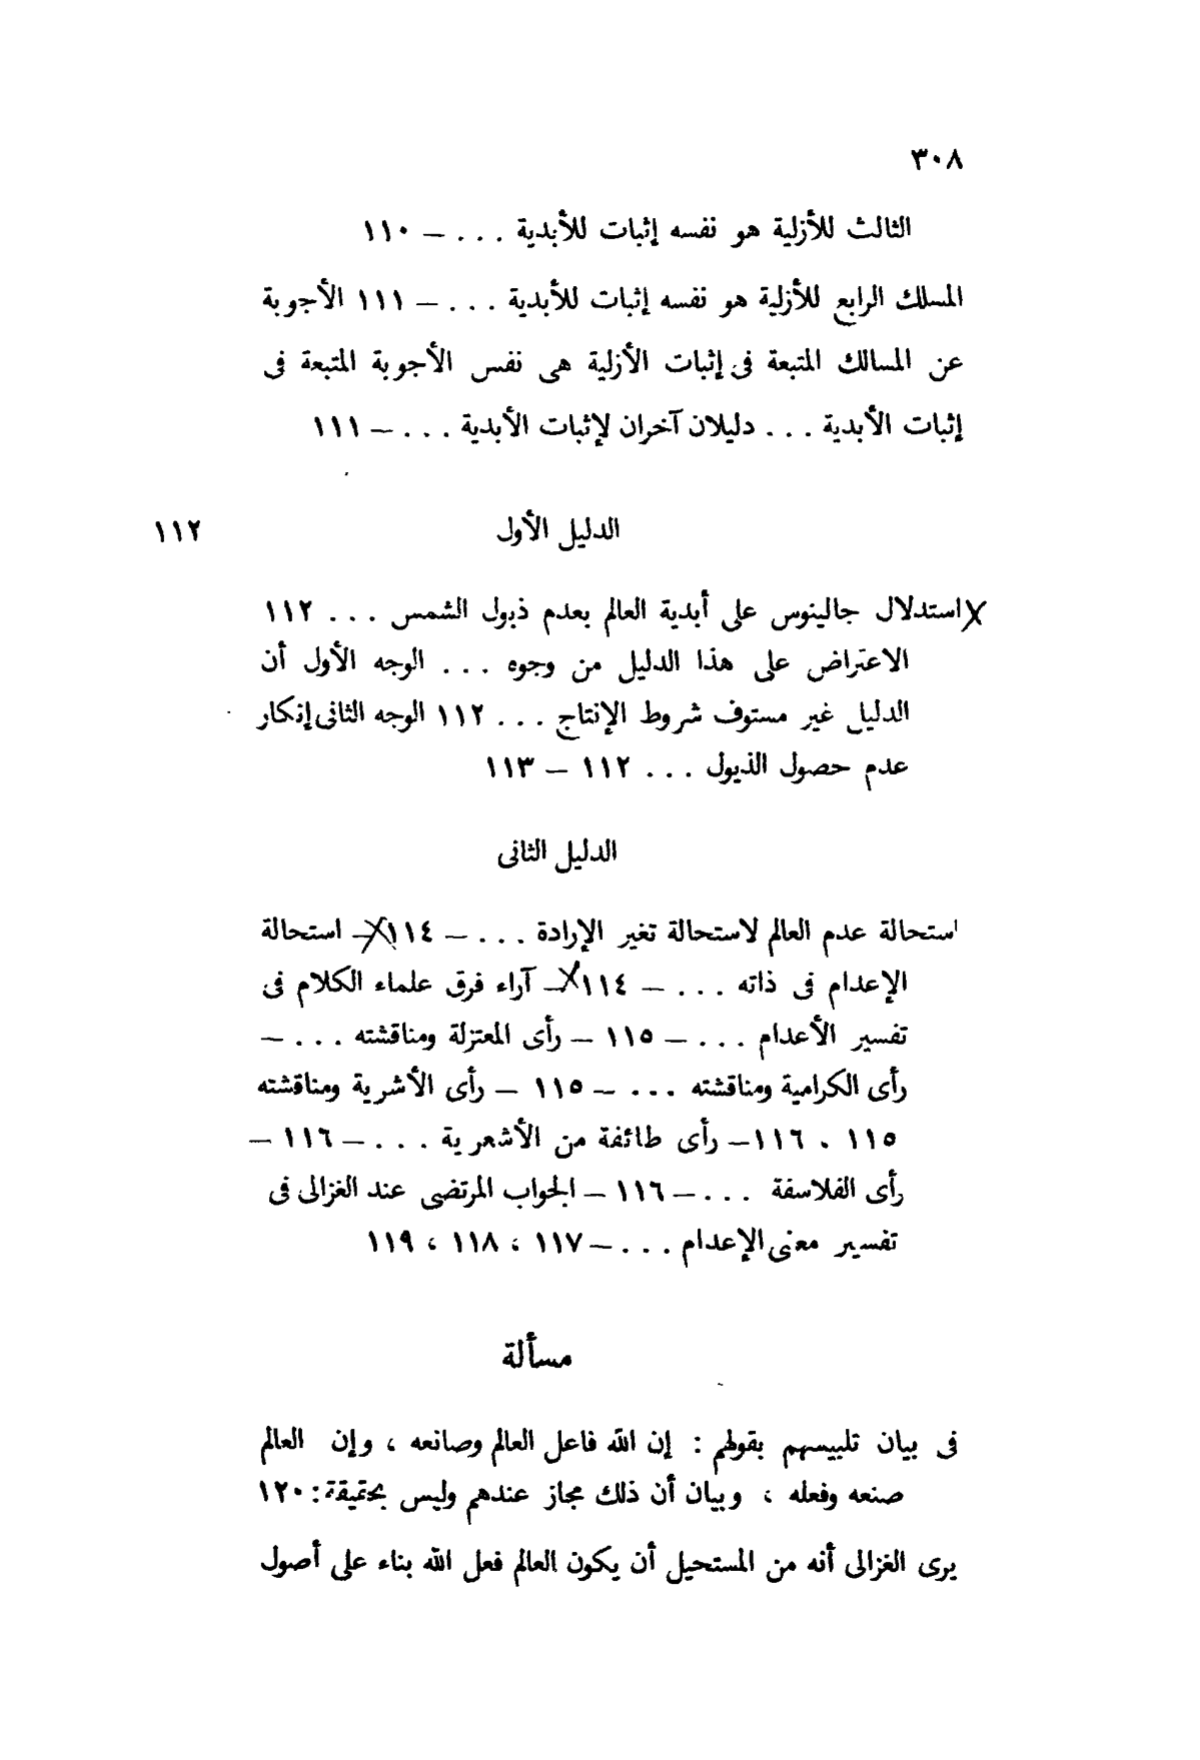 ٣٠٨
الثالث للأزلية هو نفسه إثبات للأبدية . . . — ١١٠
المسلك الرابع للأزلية هو نفسه إثبات للأبدية . . . — ١١١ الأجوبة
عن المسالك المتبعة فى إثبات الأزلية هى نفس الأجوبة المتبعة فى
إثبات الأبدية . . . دليلان آخران لإثبات الأبدية . . . — ١١١
الدليل الأول ١١٢
استدلال جالينوس على أبدية العالم بعدم ذبول الشمس . . . ١١٢
الاعتراض على هذا الدليل من وجوه . . . الوجه الأول أن
الدليل غير مستوف شروط الإنتاج . . . ١١٢ الوجه الثانى إنكار
عدم حصول الذبول . . . ١١٢ — ١١٣
الدليل الثانى
استحالة عدم العالم لاستحالة تغير الإرادة . . . — ١١٤ — استحالة
الإعدام فى ذاته . . . — ١١٤ — آراء فرق علماء الكلام فى
تفسير الأعدام . . . — ١١٥ — رأى المعتزلة ومناقشته . . . —
رأى الكرامية ومناقشته . . . — ١١٥ — رأى الأشرية ومناقشته
١١٥ ، ١١٦ — رأى طائفة من الأشعرية . . . — ١١٦ —
رأى الفلاسفة . . . — ١١٦ — الجواب المرتضى عند الغزالى فى
تفسير معنى الإعدام . . . — ١١٧ ، ١١٨ ، ١١٩
مسألة
فى بيان تلبيسهم بقولهم : إن الله فاعل العالم وصانعه ، وإن العالم
صنعه وفعله ، وبيان أن ذلك مجاز عندهم وليس بحقيقة : ١٢٠
يرى الغزالى أنه من المستحيل أن يكون العالم فعل الله بناء على أصول